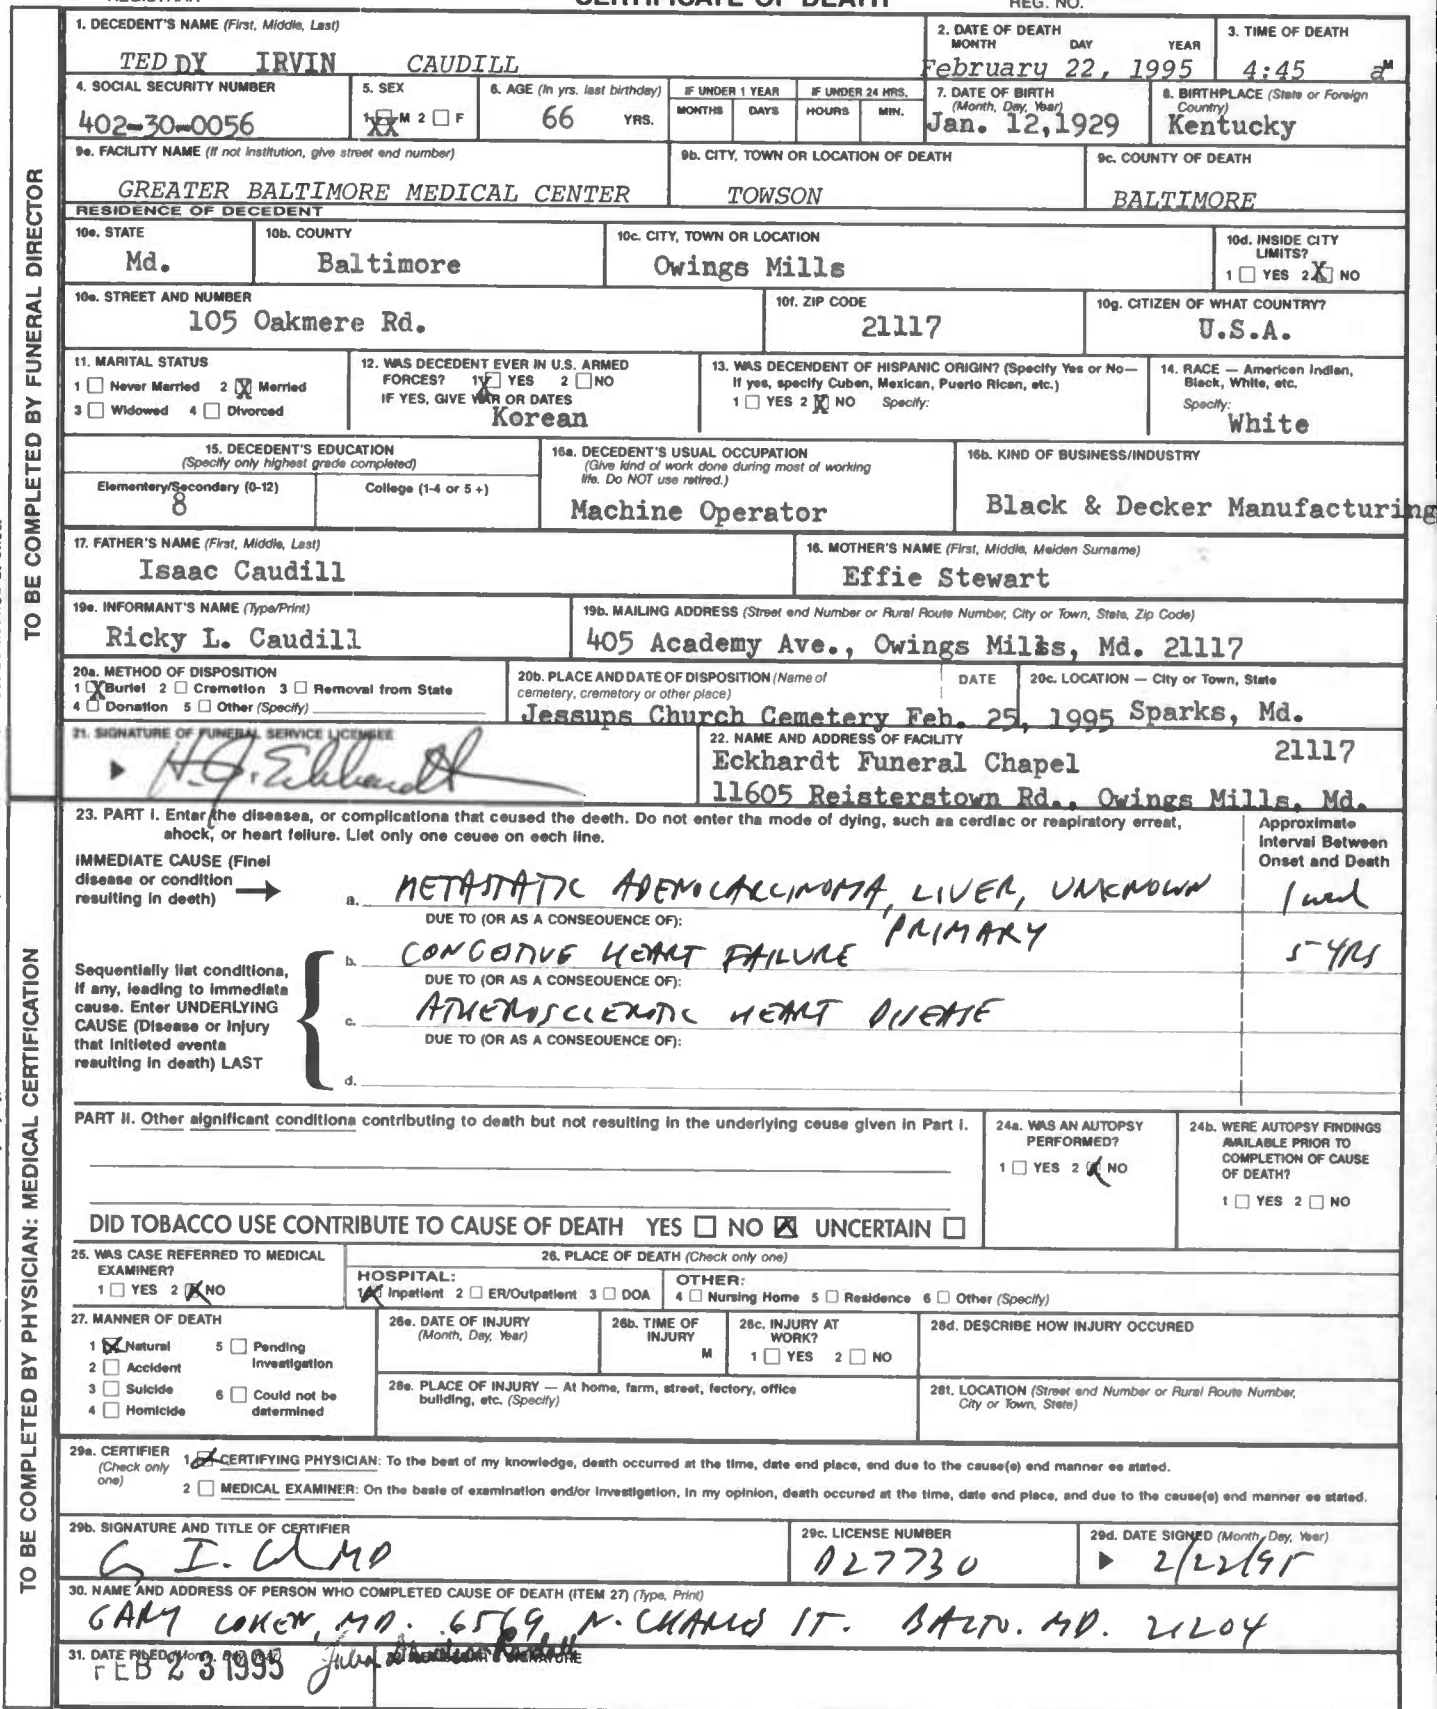 CERTIFICATE OF DEATH
REGISTRAR REG. NO.
TO BE COMPLETED BY FUNERAL DIRECTOR
1. DECEDENT'S NAME (First, Middle, Last)
TEDDY IRVIN CAUDILL
2. DATE OF DEATH
MONTH DAY YEAR
February 22, 1995
3. TIME OF DEATH
4:45 a M
4. SOCIAL SECURITY NUMBER
402-30-0056
5. SEX
1 XX M 2 ☐ F
6. AGE (In yrs. last birthday)
66 YRS.
IF UNDER 1 YEAR
MONTHS DAYS
IF UNDER 24 HRS.
HOURS MIN.
7. DATE OF BIRTH
(Month, Day, Year)
Jan. 12,1929
8. BIRTHPLACE (State or Foreign
Country)
Kentucky
9a. FACILITY NAME (If not institution, give street and number)
GREATER BALTIMORE MEDICAL CENTER
9b. CITY, TOWN OR LOCATION OF DEATH
TOWSON
9c. COUNTY OF DEATH
BALTIMORE
RESIDENCE OF DECEDENT
10a. STATE
Md.
10b. COUNTY
Baltimore
10c. CITY, TOWN OR LOCATION
Owings Mills
10d. INSIDE CITY
LIMITS?
1 ☐ YES 2 X NO
10e. STREET AND NUMBER
105 Oakmere Rd.
10f. ZIP CODE
21117
10g. CITIZEN OF WHAT COUNTRY?
U.S.A.
11. MARITAL STATUS
1 ☐ Never Married 2 X Married
3 ☐ Widowed 4 ☐ Divorced
12. WAS DECEDENT EVER IN U.S. ARMED
FORCES? 1 X YES 2 ☐ NO
IF YES, GIVE WAR OR DATES
Korean
13. WAS DECENDENT OF HISPANIC ORIGIN? (Specify Yes or No—
If yes, specify Cuban, Mexican, Puerto Rican, etc.)
1 ☐ YES 2 X NO Specify:
14. RACE — American Indian,
Black, White, etc.
Specify:
White
15. DECEDENT'S EDUCATION
(Specify only highest grade completed)
Elementary/Secondary (0-12) College (1-4 or 5 +)
8
16a. DECEDENT'S USUAL OCCUPATION
(Give kind of work done during most of working
life. Do NOT use retired.)
Machine Operator
16b. KIND OF BUSINESS/INDUSTRY
Black & Decker Manufacturing
17. FATHER'S NAME (First, Middle, Last)
Isaac Caudill
18. MOTHER'S NAME (First, Middle, Maiden Surname)
Effie Stewart
19a. INFORMANT'S NAME (Type/Print)
Ricky L. Caudill
19b. MAILING ADDRESS (Street and Number or Rural Route Number, City or Town, State, Zip Code)
405 Academy Ave., Owings Mills, Md. 21117
20a. METHOD OF DISPOSITION
1 X Burial 2 ☐ Cremation 3 ☐ Removal from State
4 ☐ Donation 5 ☐ Other (Specify)
20b. PLACE AND DATE OF DISPOSITION (Name of
cemetery, crematory or other place)
DATE
Jessups Church Cemetery Feb. 25, 1995
20c. LOCATION — City or Town, State
Sparks, Md.
21. SIGNATURE OF FUNERAL SERVICE LICENSEE
H.J. Eckhardt
22. NAME AND ADDRESS OF FACILITY
Eckhardt Funeral Chapel 21117
11605 Reisterstown Rd., Owings Mills, Md.
TO BE COMPLETED BY PHYSICIAN: MEDICAL CERTIFICATION
23. PART I. Enter the diseases, or complications that caused the death. Do not enter the mode of dying, such as cardiac or respiratory arrest,
shock, or heart failure. List only one cause on each line.
Approximate
Interval Between
Onset and Death
IMMEDIATE CAUSE (Final
disease or condition
resulting in death)
a. METASTATIC ADENOCARCINOMA, LIVER, UNKNOWN
PRIMARY
DUE TO (OR AS A CONSEQUENCE OF):
b. CONGESTIVE HEART FAILURE 5 YRS
DUE TO (OR AS A CONSEQUENCE OF):
c. ATHEROSCLEROTIC HEART DISEASE
DUE TO (OR AS A CONSEQUENCE OF):
d.
Sequentially list conditions,
if any, leading to immediate
cause. Enter UNDERLYING
CAUSE (Disease or injury
that initiated events
resulting in death) LAST
PART II. Other significant conditions contributing to death but not resulting in the underlying cause given in Part I.
24a. WAS AN AUTOPSY
PERFORMED?
1 ☐ YES 2 X NO
24b. WERE AUTOPSY FINDINGS
AVAILABLE PRIOR TO
COMPLETION OF CAUSE
OF DEATH?
1 ☐ YES 2 ☐ NO
DID TOBACCO USE CONTRIBUTE TO CAUSE OF DEATH YES ☐ NO X UNCERTAIN ☐
25. WAS CASE REFERRED TO MEDICAL
EXAMINER?
1 ☐ YES 2 X NO
26. PLACE OF DEATH (Check only one)
HOSPITAL:
1 X Inpatient 2 ☐ ER/Outpatient 3 ☐ DOA
OTHER:
4 ☐ Nursing Home 5 ☐ Residence 6 ☐ Other (Specify)
27. MANNER OF DEATH
1 X Natural 5 ☐ Pending
Investigation
2 ☐ Accident
3 ☐ Suicide 6 ☐ Could not be
determined
4 ☐ Homicide
28a. DATE OF INJURY
(Month, Day, Year)
28b. TIME OF
INJURY
M
28c. INJURY AT
WORK?
1 ☐ YES 2 ☐ NO
28d. DESCRIBE HOW INJURY OCCURED
28e. PLACE OF INJURY — At home, farm, street, factory, office
building, etc. (Specify)
28f. LOCATION (Street and Number or Rural Route Number,
City or Town, State)
29a. CERTIFIER
(Check only
one)
1 X CERTIFYING PHYSICIAN: To the best of my knowledge, death occurred at the time, date and place, and due to the cause(s) and manner as stated.
2 ☐ MEDICAL EXAMINER: On the basis of examination and/or investigation, in my opinion, death occured at the time, date and place, and due to the cause(s) and manner as stated.
29b. SIGNATURE AND TITLE OF CERTIFIER
MD
29c. LICENSE NUMBER
D27730
29d. DATE SIGNED (Month, Day, Year)
2/22/95
30. NAME AND ADDRESS OF PERSON WHO COMPLETED CAUSE OF DEATH (ITEM 27) (Type, Print)
GARY COHEN, MD. 6569 N. CHARLES ST. BALTO. MD. 21204
31. DATE FILED (Month, Day, Year)
FEB 23 1995